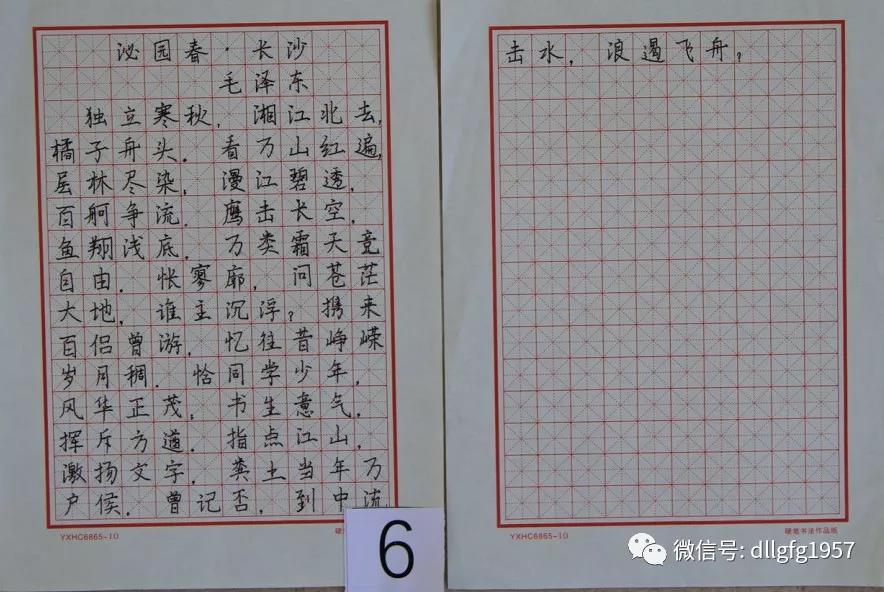 泌园春·长沙
毛泽东
独立寒秋,湘江北去,
橘子舟头.看万山红遍,
层林尽染,漫江碧透,
百舸争流.鹰击长空,
鱼翔浅底.万类霜天竞
自由.怅寥廓,问苍茫
大地,谁主沉浮?携来
百侣曾游,忆往昔峥嵘
岁月稠.恰同学少年,
风华正茂,书生意气,
挥斥方遒.指点江山,
激扬文字,粪土当年万
户侯.曾记否,到中流
YXHC6865-10
6
击水,浪遏飞舟?
YXHC6865-10
硬笔书法作品纸
微信号: dllgfg1957